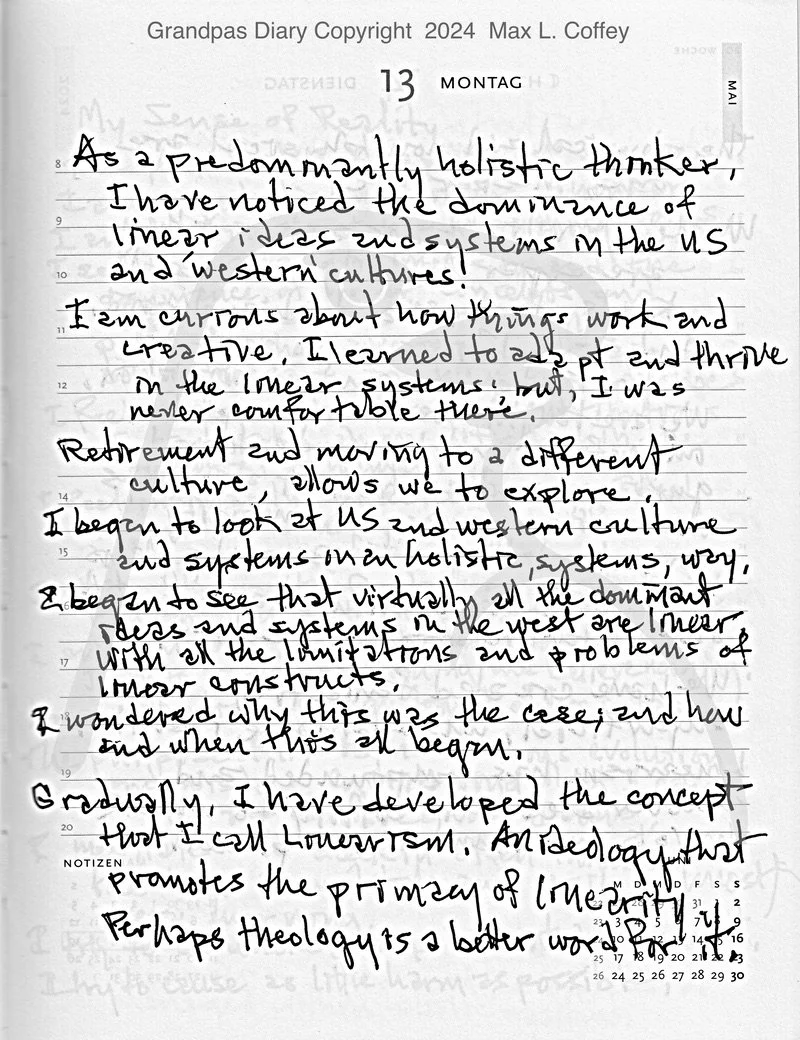 Grandpas Diary Copyright 2024 Max L. Coffey
13 MONTAG
MAI
8 As a predominantly holistic thinker,
I have noticed the dominance of
9
linear ideas and systems in the US
10 and 'western' cultures!
11 I am curious about how things work and
creative. I learned to adapt and thrive
12 in the linear systems; but, I was
never comfortable there.
Retirement and moving to a different
culture, allows me to explore.
14
I began to look at US and western culture
15 and systems in an holistic, systems, way.
I began to see that virtually all the dominant
ideas and systems in the west are linear.
17 with all the limitations and problems of
linear constructs.
I wondered why this was the case; and how
and when this all began.
19
Gradually, I have developed the concept
20 that I call Linearism. An ideology that
NOTIZEN
promotes the primacy of linearity.
Perhaps theology is a better word for it.
M D M D F S S
31 2
23 7 9
10 14 16
25 17 18 19 20 21 22 23
26 24 25 26 27 28 29 30